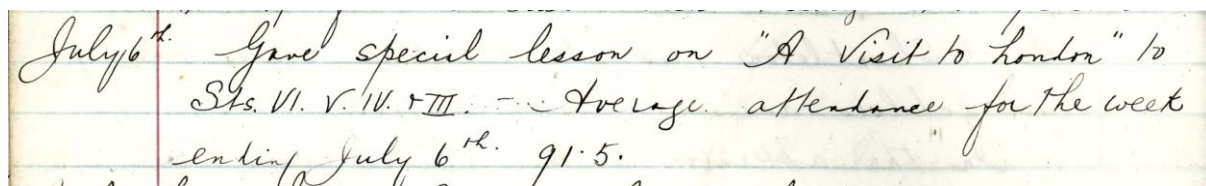 July 6th. Gave special lesson on "A Visit to London" to
Sts. VI. V. IV. & III. - Average attendance for the week
ending July 6th. 91.5.